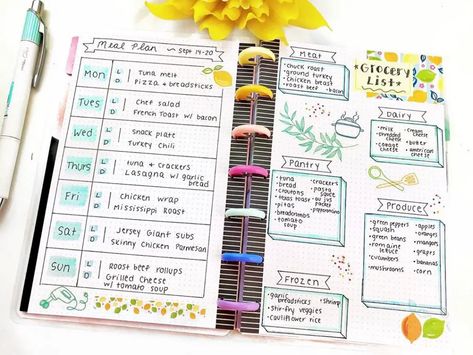 Meal Plan ~ Sept 14-20
Mon
L Tuna melt
D Pizza & breadsticks
Tues
L Chef salad
D French Toast w/ bacon
Wed
L Snack plate
D Turkey Chili
Thurs
L tuna & crackers
D Lasagna w/ garlic
bread
Fri
L Chicken wrap
D Mississippi Roast
Sat
L Jersey Giant subs
D Skinny Chicken Parmesan
Sun
L Roast beef rollups
D Grilled Cheese
w/ tomato soup
Meat
• chuck roast
• ground turkey
• chicken breast
• roast beef • bacon
*Grocery
List*
Dairy
• milk • cream cheese
• shredded cheese • butter
• cottage cheese • american cheese
Pantry
• tuna • crackers
• bread • pasta
• croutons sauce
• texas toast
• pitas
• breadcrumbs • pepperoncini
• tomato
soup
Produce
• green peppers • apples
• squash • oranges
• green beans • mangos
• romaine • grapes
lettuce • bananas
• cucumbers • corn
• mushrooms
Frozen
• garlic
breadsticks • shrimp
• stir-fry veggies
• cauliflower rice